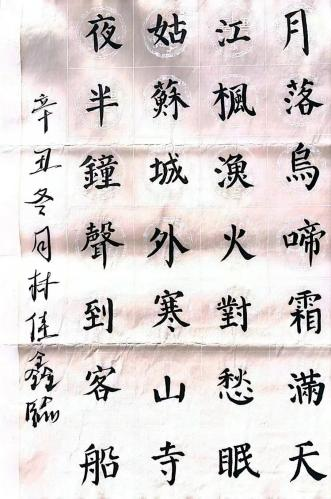 月落烏啼霜滿天
江楓漁火對愁眠
姑蘇城外寒山寺
夜半鐘聲到客船
辛丑冬月林佳鑫臨